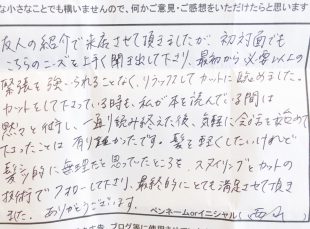 な小さなことでも構いませんので、何かご意見・ご感想をいただけたらと思います
友人の紹介で来店させて頂きましたが 初対面でも
こちらのニーズを上手く聞き出して下り、最初から必要以上の
緊張を強いられることなく、リラックスしてカットに臨めました。
カットをして下さっている時も、私が本を読んでいる間は
黙々と施術し、一通り読み終えた後、気軽に会話を始めて
下さったことは 有り難かったです。髪を軽くしたいけれど
髪質的に無理だと思ってたところを、スタイリングとカットの
技術でフォローして下さり、最終的にとても満足させて頂き
ました。ありがとうございます。
ペンネームorイニシャル(
ブログ等に使用させて